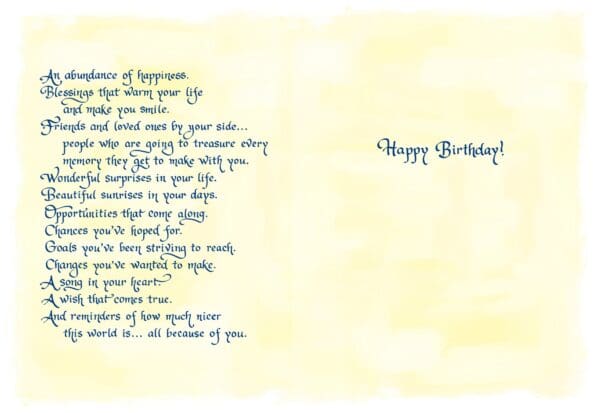 An abundance of happiness.
Blessings that warm your life
and make you smile.
Friends and loved ones by your side...
people who are going to treasure every
memory they get to make with you.
Wonderful surprises in your life.
Beautiful sunrises in your days.
Opportunities that come along.
Chances you've hoped for.
Goals you've been striving to reach.
Changes you've wanted to make.
A song in your heart.
A wish that comes true.
And reminders of how much nicer
this world is... all because of you.
Happy Birthday!